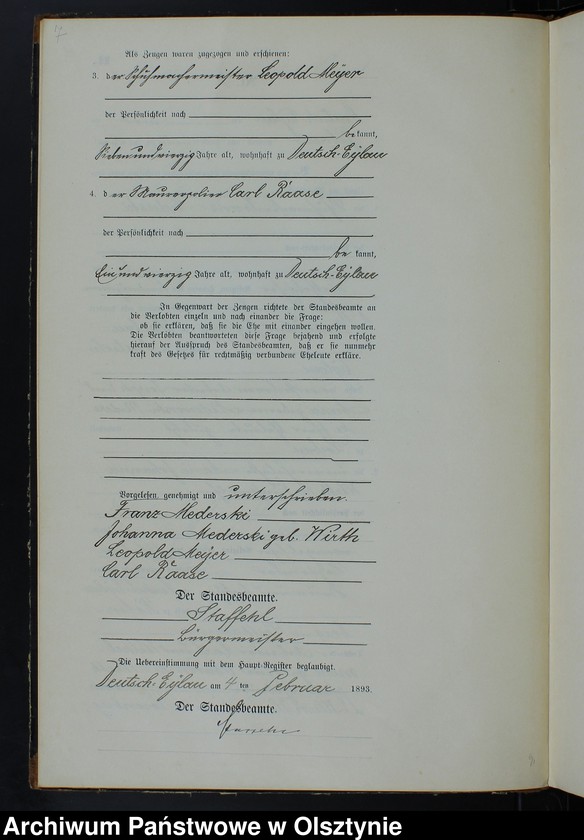 Als Zeugen waren zugezogen und erschienen:
3. der Schuhmachermeister Leopold Meyer
der Persönlichkeit nach
bekannt,
Siebenundvierzig Jahre alt, wohnhaft zu Deutsch-Eylau
4. der Maurerpolier Carl Raase
der Persönlichkeit nach
be kannt,
Einundvierzig Jahre alt, wohnhaft zu Deutsch-Eylau
In Gegenwart der Zeugen richtete der Standesbeamte an
die Verlobten einzeln und nach einander die Frage:
ob sie erklären, daß sie die Ehe mit einander eingehen wollen.
Die Verlobten beantworteten diese Frage bejahend und erfolgte
hierauf der Ausspruch des Standesbeamten, daß er sie nunmehr
kraft des Gesetzes für rechtmäßig verbundene Eheleute erkläre.
Vorgelesen, genehmigt und unterschrieben.
Franz Mederski
Johanna Mederski geb. Wirth
Leopold Meyer
Carl Raase
Der Standesbeamte.
Staffehl
Bürgermeister
Die Uebereinstimmung mit dem Haupt-Register beglaubigt.
Deutsch-Eylau am 4 ten Februar 1893.
Der Standesbeamte.
Archiwum Państwowe w Olsztynie